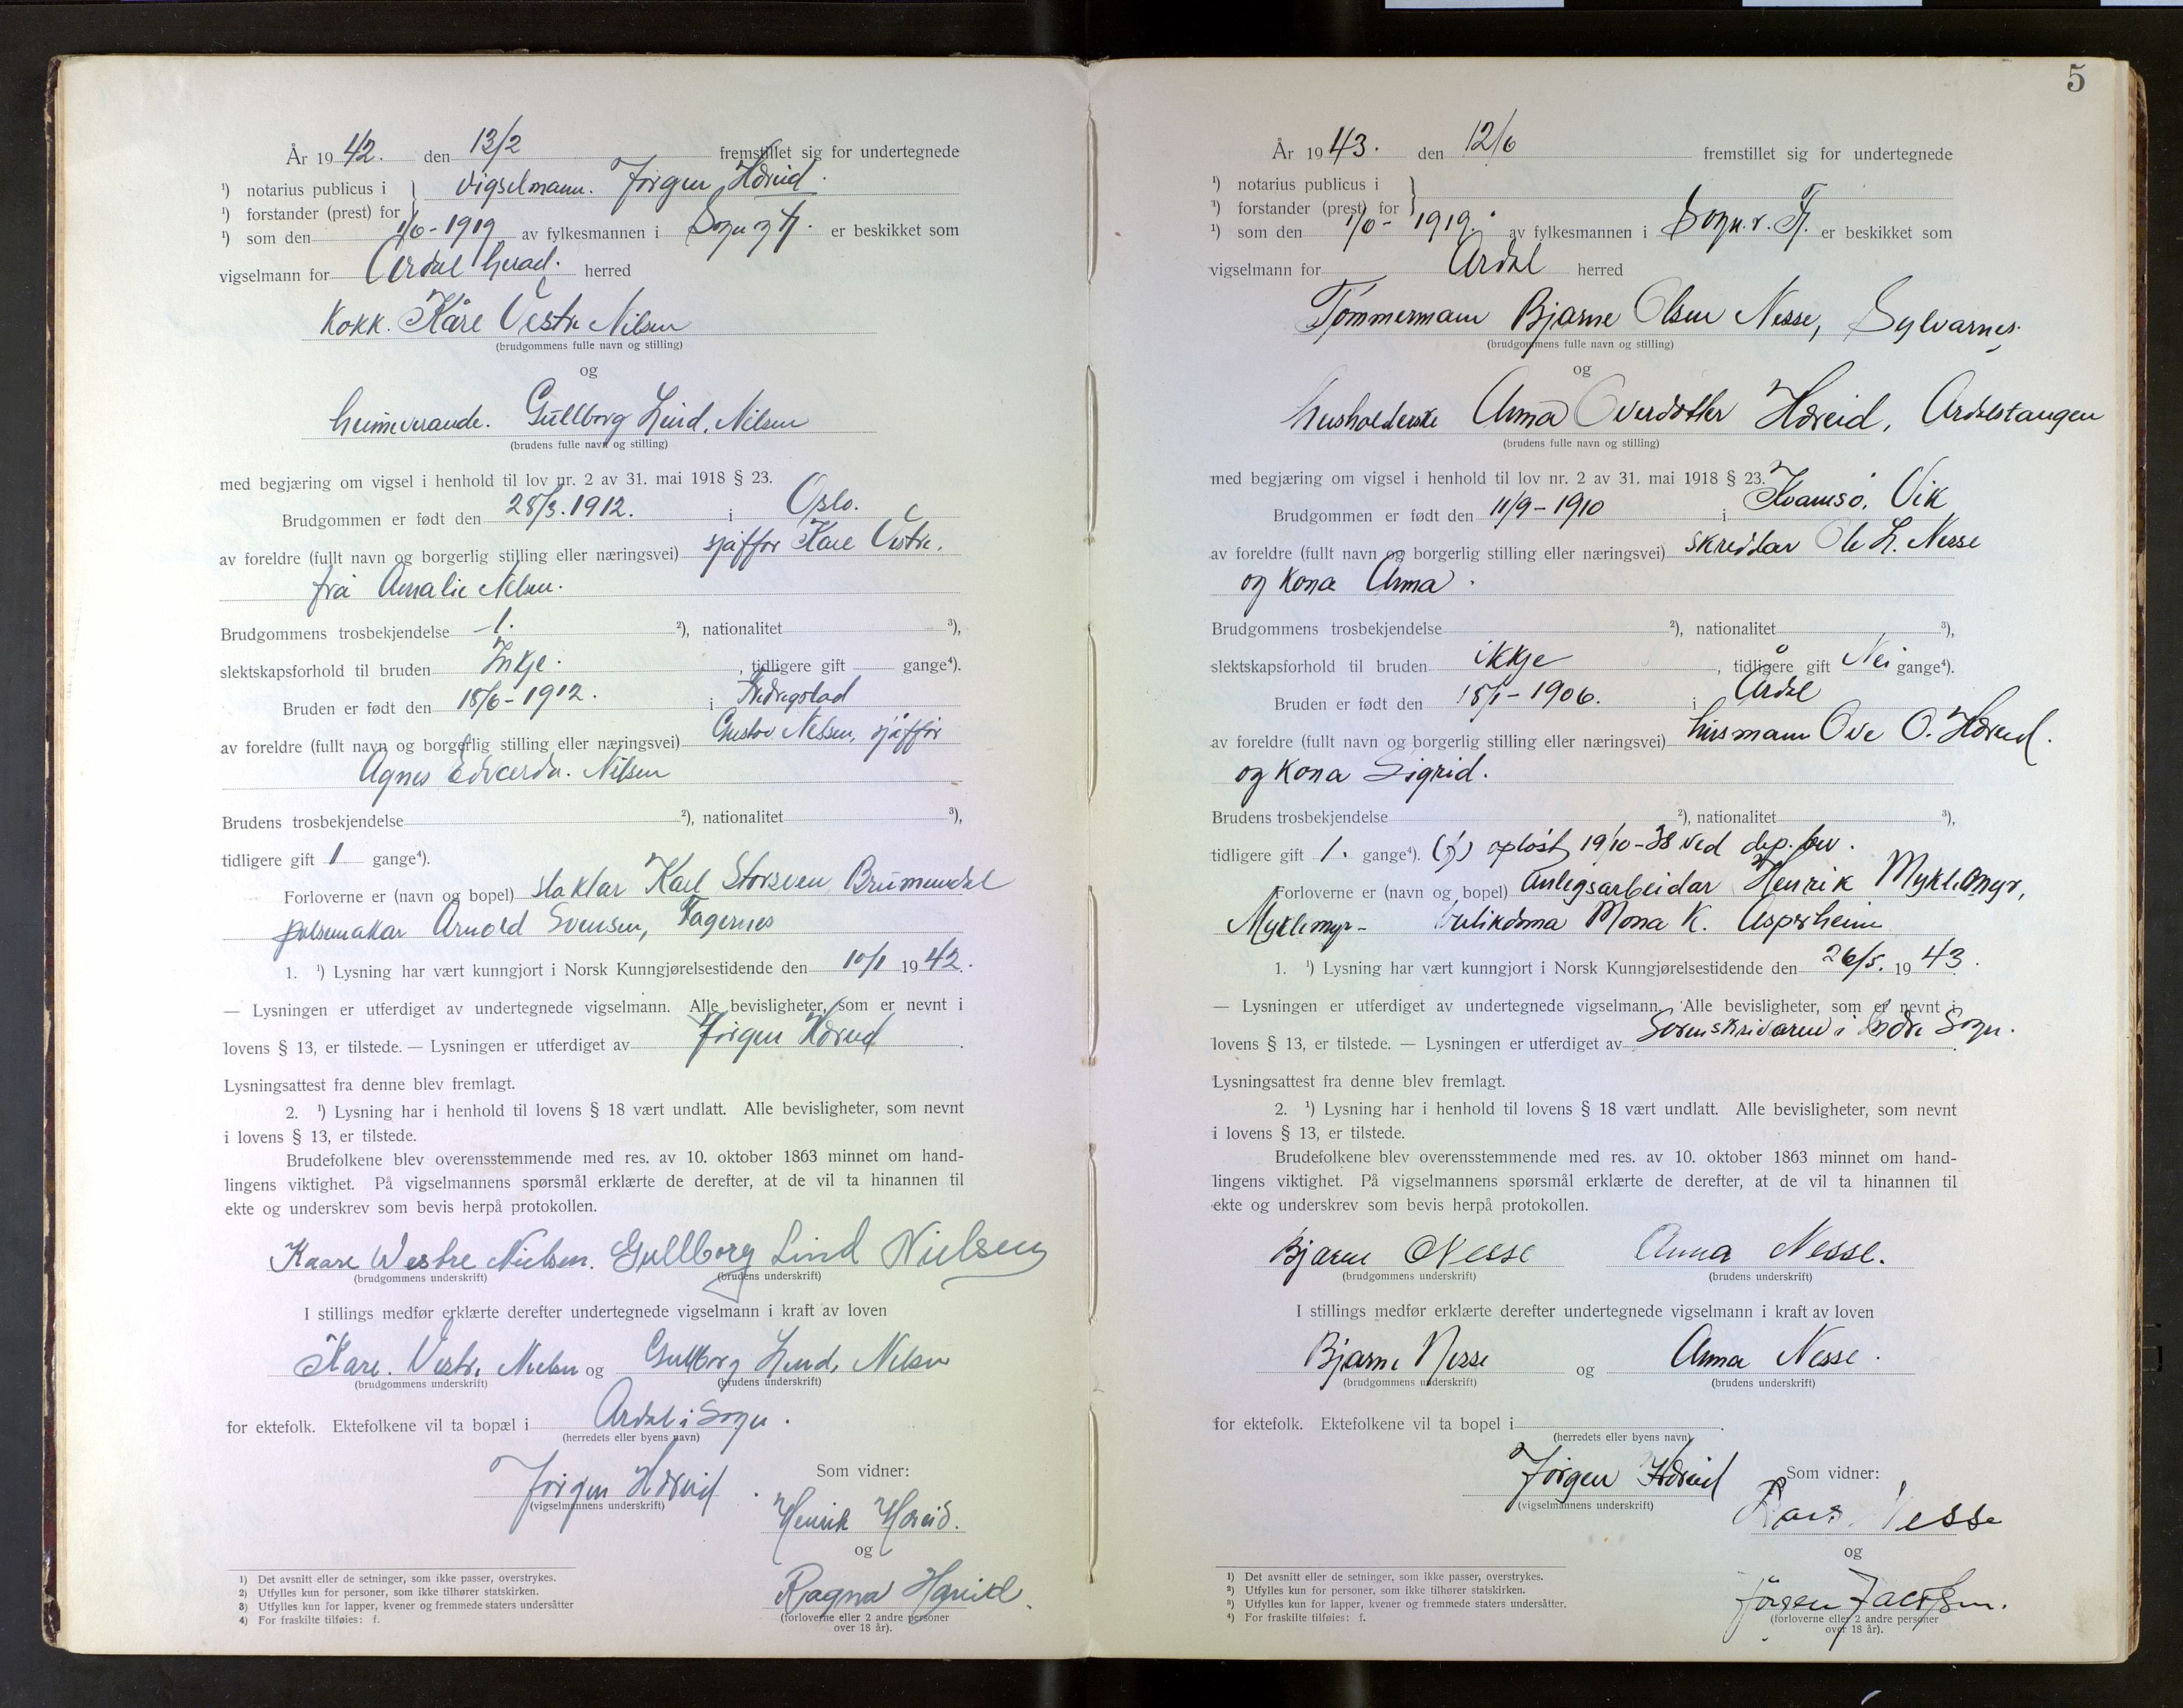 År 1942. den 13/2 fremstillet sig for undertegnede
¹) notarius publicus i } vigselmann. Jørgen Hæreid.
¹) forstander (prest) for
¹) som den 1/6-1919 av fylkesmannen i Sogn og Fj. er beskikket som
vigselmann for Årdal herad. herred
Kokk. Kåre Vestre Nilsen
(brudgommens fulle navn og stilling)
og
heimeverande. Gullborg Lind, Nilsen
(brudens fulle navn og stilling)
med begjæring om vigsel i henhold til lov nr. 2 av 31. mai 1918 § 23.
Brudgommen er født den 28/3.1912. i Oslo.
av foreldre (fullt navn og borgerlig stilling eller næringsvei) sjåffør Kåre Vestre.
frå Amalie Nilsen.
Brudgommens trosbekjendelse 1. ²), nationalitet ³),
slektskapsforhold til bruden Inkje. , tidligere gift gange⁴).
Bruden er født den 18/6-1912. i Fredrigstad
av foreldre (fullt navn og borgerlig stilling eller næringsvei) Gustav Nilssen, sjåffør
Agnes Edvarda. Nilsen
Brudens trosbekjendelse ²), nationalitet ³),
tidligere gift 1 gange⁴).
Forloverne er (navn og bopel) slaktar Karl Storsveen Brumundal
pølsemakar Arnold Svensen, Fagernes
1. ¹) Lysning har vært kunngjort i Norsk Kunngjørelsestidende den 10/1 1942.
— Lysningen er utferdiget av undertegnede vigselmann. Alle bevisligheter, som er nevnt i
lovens § 13, er tilstede. — Lysningen er utferdiget av Jørgen Hæreid.
Lysningsattest fra denne blev fremlagt.
2. ¹) Lysning har i henhold til lovens § 18 vært undlatt. Alle bevisligheter, som nevnt
i lovens § 13, er tilstede.
Brudefolkene blev overensstemmende med res. av 10. oktober 1863 minnet om hand-
lingens viktighet. På vigselmannens spørsmål erklærte de derefter, at de vil ta hinannen til
ekte og underskrev som bevis herpå protokollen.
Kaare Westre Nielsen. Gullborg Lind Nielsen
(brudgommens underskrift) (brudens underskrift)
I stillings medfør erklærte derefter undertegnede vigselmann i kraft av loven
Kåre. Vestre Nielsen og Gullborg Lind, Nilsen
(brudgommens underskrift) (brudens underskrift)
for ektefolk. Ektefolkene vil ta bopæl i Årdal i Sogn.
(herredets eller byens navn)
Jørgen Hæreid.
(vigselmannens underskrift)
Som vidner:
Henrik Hæreid.
og
Ragna Hæreid.
(forloverne eller 2 andre personer
over 18 år).
1) Det avsnitt eller de setninger, som ikke passer, overstrykes.
2) Utfylles kun for personer, som ikke tilhører statskirken.
3) Utfylles kun for lapper, kvener og fremmede staters undersåtter
4) For fraskilte tilføies: f.
5
År 1943. den 12/6 fremstillet sig for undertegnede
¹) notarius publicus i }
¹) forstander (prest) for
¹) som den 1/6-1919. av fylkesmannen i Sogn. o. Fj. er beskikket som
vigselmann for Årdal herred
Tømmermann Bjarne Olsen Nesse, Sylvarnes.
(brudgommens fulle navn og stilling)
og
husholderske Anna Overdotter Hæreid, Årdalstangen
(brudens fulle navn og stilling)
med begjæring om vigsel i henhold til lov nr. 2 av 31. mai 1918 § 23.
Brudgommen er født den 11/9-1910 i Kvamsø, Vik
av foreldre (fullt navn og borgerlig stilling eller næringsvei) skreddar Ole L. Nesse
og kona Anna.
Brudgommens trosbekjendelse ²), nationalitet ³),
slektskapsforhold til bruden ikkje , tidligere gift Nei gange⁴).
Bruden er født den 15/1-1906. i Årdal
av foreldre (fullt navn og borgerlig stilling eller næringsvei) husmann Ove O. Hæreid.
og kona Sigrid.
Brudens trosbekjendelse ²), nationalitet ³),
tidligere gift 1. gange⁴). (f) opløst 19/10-38 ved dep. bev.
Forloverne er (navn og bopel) Anlegsarbeidar Henrik Myklemyr,
Myklemyr - butikdama Mona K. Asperheim
1. ¹) Lysning har vært kunngjort i Norsk Kunngjørelsestidende den 26/5. 1943.
— Lysningen er utferdiget av undertegnede vigselmann. Alle bevisligheter, som er nevnt i
lovens § 13, er tilstede. — Lysningen er utferdiget av Sorenskrivaren i Indre Sogn.
Lysningsattest fra denne blev fremlagt.
2. ¹) Lysning har i henhold til lovens § 18 vært undlatt. Alle bevisligheter, som nevnt
i lovens § 13, er tilstede.
Brudefolkene blev overensstemmende med res. av 10. oktober 1863 minnet om hand-
lingens viktighet. På vigselmannens spørsmål erklærte de derefter, at de vil ta hinannen til
ekte og underskrev som bevis herpå protokollen.
Bjarne Nesse Anna Nesse.
(brudgommens underskrift) (brudens underskrift)
I stillings medfør erklærte derefter undertegnede vigselmann i kraft av loven
Bjarne Nesse og Anna Nesse.
(brudgommens underskrift) (brudens underskrift)
for ektefolk. Ektefolkene vil ta bopel i .
(herredets eller byens navn)
Jørgen Hæreid
(vigselmannens underskrift)
Som vidner:
Lars Nesse
og
Jørgen Jacobsen.
(forloverne eller 2 andre personer
over 18 år).
¹) Det avsnitt eller de setninger, som ikke passer, overstrykes.
²) Utfylles kun for personer, som ikke tilhører statskirken.
³) Utfylles kun for lapper, kvener og fremmede staters undersåtter.
⁴) For fraskilte tilføies: f.